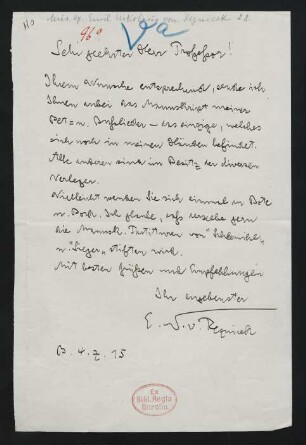 Mus. ep. Emil Nikolaus von Reznicek 21
Va
Sehr geehrter Herr Professor!
Ihrem Wunsche entsprechend, sende ich
Ihnen anbei das Manuskript meiner
Bet= u. Bußlieder – das einzige, welches
sich noch in meinen Händen befindet.
Alle anderen sind im Besitz der diversen
Verleger.
Vielleicht wenden Sie sich einmal an Bote
u. Bock. Ich glaube, daß derselbe gern
die Manusk. Partituren von "Schlemihl"
u. "Sieger" stiften wird.
Mit besten Grüßen und Empfehlungen
Ihr ergebenster
E. N. v. Reznicek
B. 4. 2. 15
Ex
Bibl. Regia
Berolin.